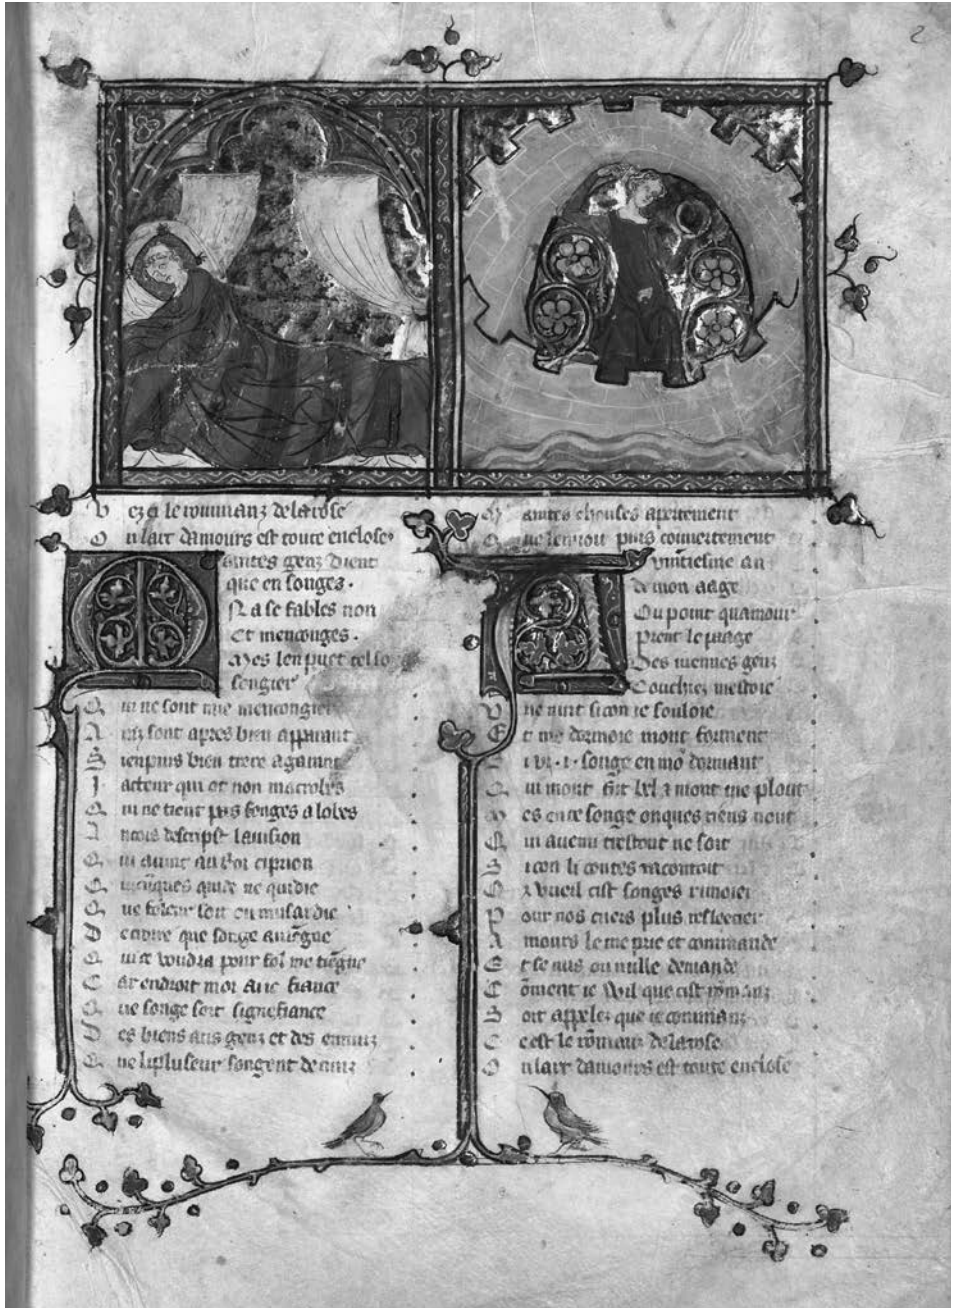 2
V ez ci le roumanz de la rose
O u lart damours est toute enclose
M aintes genz dient
que en songes
N a se fables non
Et mencouges
Mes len puet tel so
songier
Q ui ne sont mie mencongier
A inz sont apres bien apparant
S i en puis bien trere a garant
J acteur qui ot non macrobes
Q ui ne tient pas songes a lobes
A ncois descript la vision
Q ui avint au roi ciprion
Q uicunques quide ne qui die
Q ue foleur soit ou musardie
D e croire que songe aviegne
Q ui ce voudra pour fol me tiegne
C ar endroit moi ai ie fiance
Q ue songe soit signefiance
D es biens aus genz et des ennuiz
Q ue li pluseur songent de nuiz
M aintes chouses apertement
Q ue len voit puis couvertement
A vintiesme an
de mon aage
Ou point quamour
prent le paage
Des iuennes genz
Couchiez mestoie
U ne nuit si con ie souloie
E t me dormoie mout forment
S i vi .i. songe en mon dormant
Q ui mout fut bel et mout me plout
M es en ce songe onques riens nout
Q ui avenu trestout ne soit
S i con li contes racontoit
O r vueil cist songes rimoier
P our nos cuers plus resleecier
A mours le me prie et commande
E t se nus ou nulle demande
C oment ie vuil que cist romanz
S oit appelez que ie commanz
C e est le romanz de la rose
O u lart damours est toute enclose